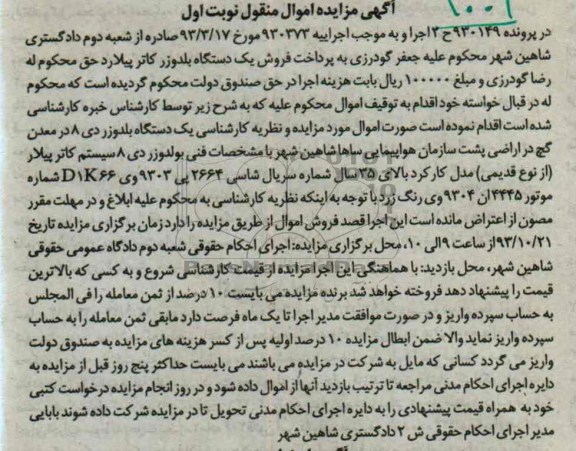 ۱۰۰۹
آگهی مزایده اموال منقول نوبت اول
در پرونده ۹۳۰۱۴۹ح ۲اجرا و به موجب اجراییه ۹۳۰۳۷۳ مورخ ۹۳/۳/۱۷ صادره از شعبه دوم دادگستری
شاهین شهر محکوم علیه جعفر گودرزی به پرداخت فروش یک دستگاه بلدوزر کاتر پیلارد حق محکوم له
رضا گودرزی و مبلغ ۱۰۰۰۰۰ ریال بابت هزینه اجرا در حق صندوق دولت محکوم گردیده است که محکوم
له در قبال خواسته خود اقدام به توقیف اموال محکوم علیه که به شرح زیر توسط کارشناس خبره کارشناسی
شده است اقدام نموده است صورت اموال مورد مزایده و نظریه کارشناسی یک دستگاه بلدوزر دی ۸ در معدن
گچ در اراضی پشت سازمان هواپیمایی ساها شاهین شهر با مشخصات فنی بولدوزر دی ۸ سیستم کاتر پیلار
(از نوع قدیمی) مدل کارکرد بالای ۳۵ سال شماره سریال شاسی ۲۶۶۴ پی ۹۳۰۳ وی D۱K۶۶ شماره
موتور ۴۴۴۵ان ۹۳۰۴ وی رنگ زرد با توجه به اینکه نظریه کارشناسی به محکوم علیه ابلاغ و در مهلت مقرر
مصون از اعتراض مانده است این اجرا قصد فروش اموال از طریق مزایده را دارد زمان برگزاری مزایده تاریخ
۹۳/۱۰/۲۱از ساعت ۹ الی ۱۰، محل برگزاری مزایده: اجرای احکام حقوقی شعبه دوم دادگاه عمومی حقوقی
شاهین شهر، محل بازدید: با هماهنگی این اجرا مزایده از قیمت کارشناسی شروع و به کسی که بالاترین
قیمت را پیشنهاد دهد فروخته خواهد شد برنده مزایده می بایست ۱۰ درصد از ثمن معامله را فی المجلس
به حساب سپرده واریز و در صورت موافقت مدیر اجرا تا یک ماه فرصت دارد مابقی ثمن معامله را به حساب
سپرده واریز نماید والا ضمن ابطال مزایده ۱۰ درصد اولیه پس از کسر هزینه های مزایده به صندوق دولت
واریز می گردد کسانی که مایل به شرکت در مزایده می باشند می بایست حداکثر پنج روز قبل از مزایده به
دایره اجرای احکام مدنی مراجعه تا ترتیب بازدید آنها از اموال داده شود و در روز انجام مزایده درخواست کتبی
خود به همراه قیمت پیشنهادی را به دایره اجرای احکام مدنی تحویل تا در مزایده شرکت داده شوند بابایی
مدیر اجرای احکام حقوقی ش ۲ دادگستری شاهین شهر